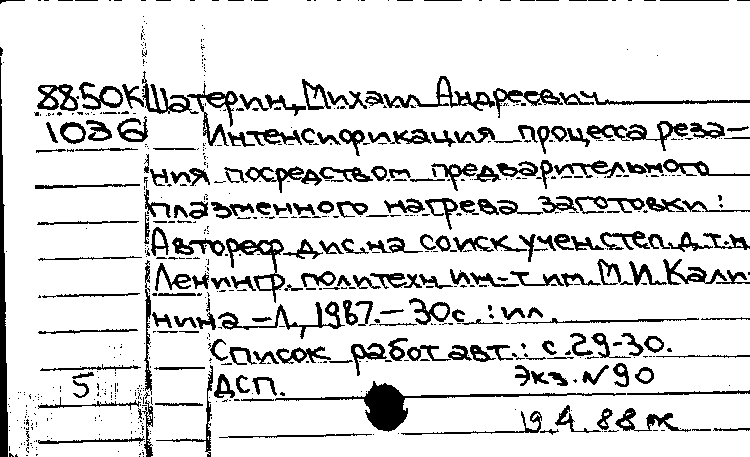 88.50К Шатерин, Михаил Андреевич
1036 Интенсификация процесса реза-
ния посредством предварительного
плазменного нагрева заготовки :
Автореф. дис. на соиск. учен. степ. д. т. н
Ленингр. политехн. ин-т им. М. И. Кали-
нина – Л., 1987. – 30 с. : ил.
Список работ авт. : с. 29-30.
5 ДСП. Экз. N 90
19.4.88